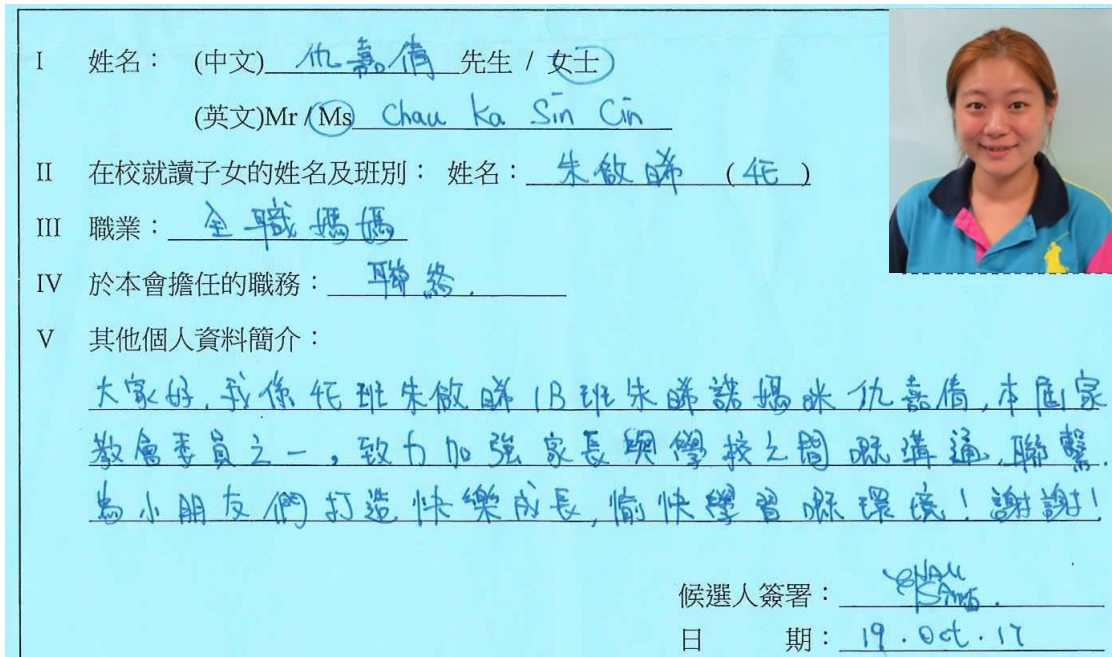 I 姓名： (中文) 仇嘉倩 先生 / 女士
(英文)Mr / Ms Chau Ka Sin Cin
II 在校就讀子女的姓名及班別： 姓名： 朱啟晞 ( 4E )
III 職業： 全職媽媽
IV 於本會擔任的職務： 聯絡.
V 其他個人資料簡介：
大家好, 我係4E班朱啟晞1B班朱晞諾媽咪仇嘉倩, 本屆家
教會委員之一, 致力加強家長與學校之間嘅溝通, 聯繫.
為小朋友們打造快樂成長, 愉快學習嘅環境! 謝謝!
候選人簽署：
日 期： 19 . Oct . 17